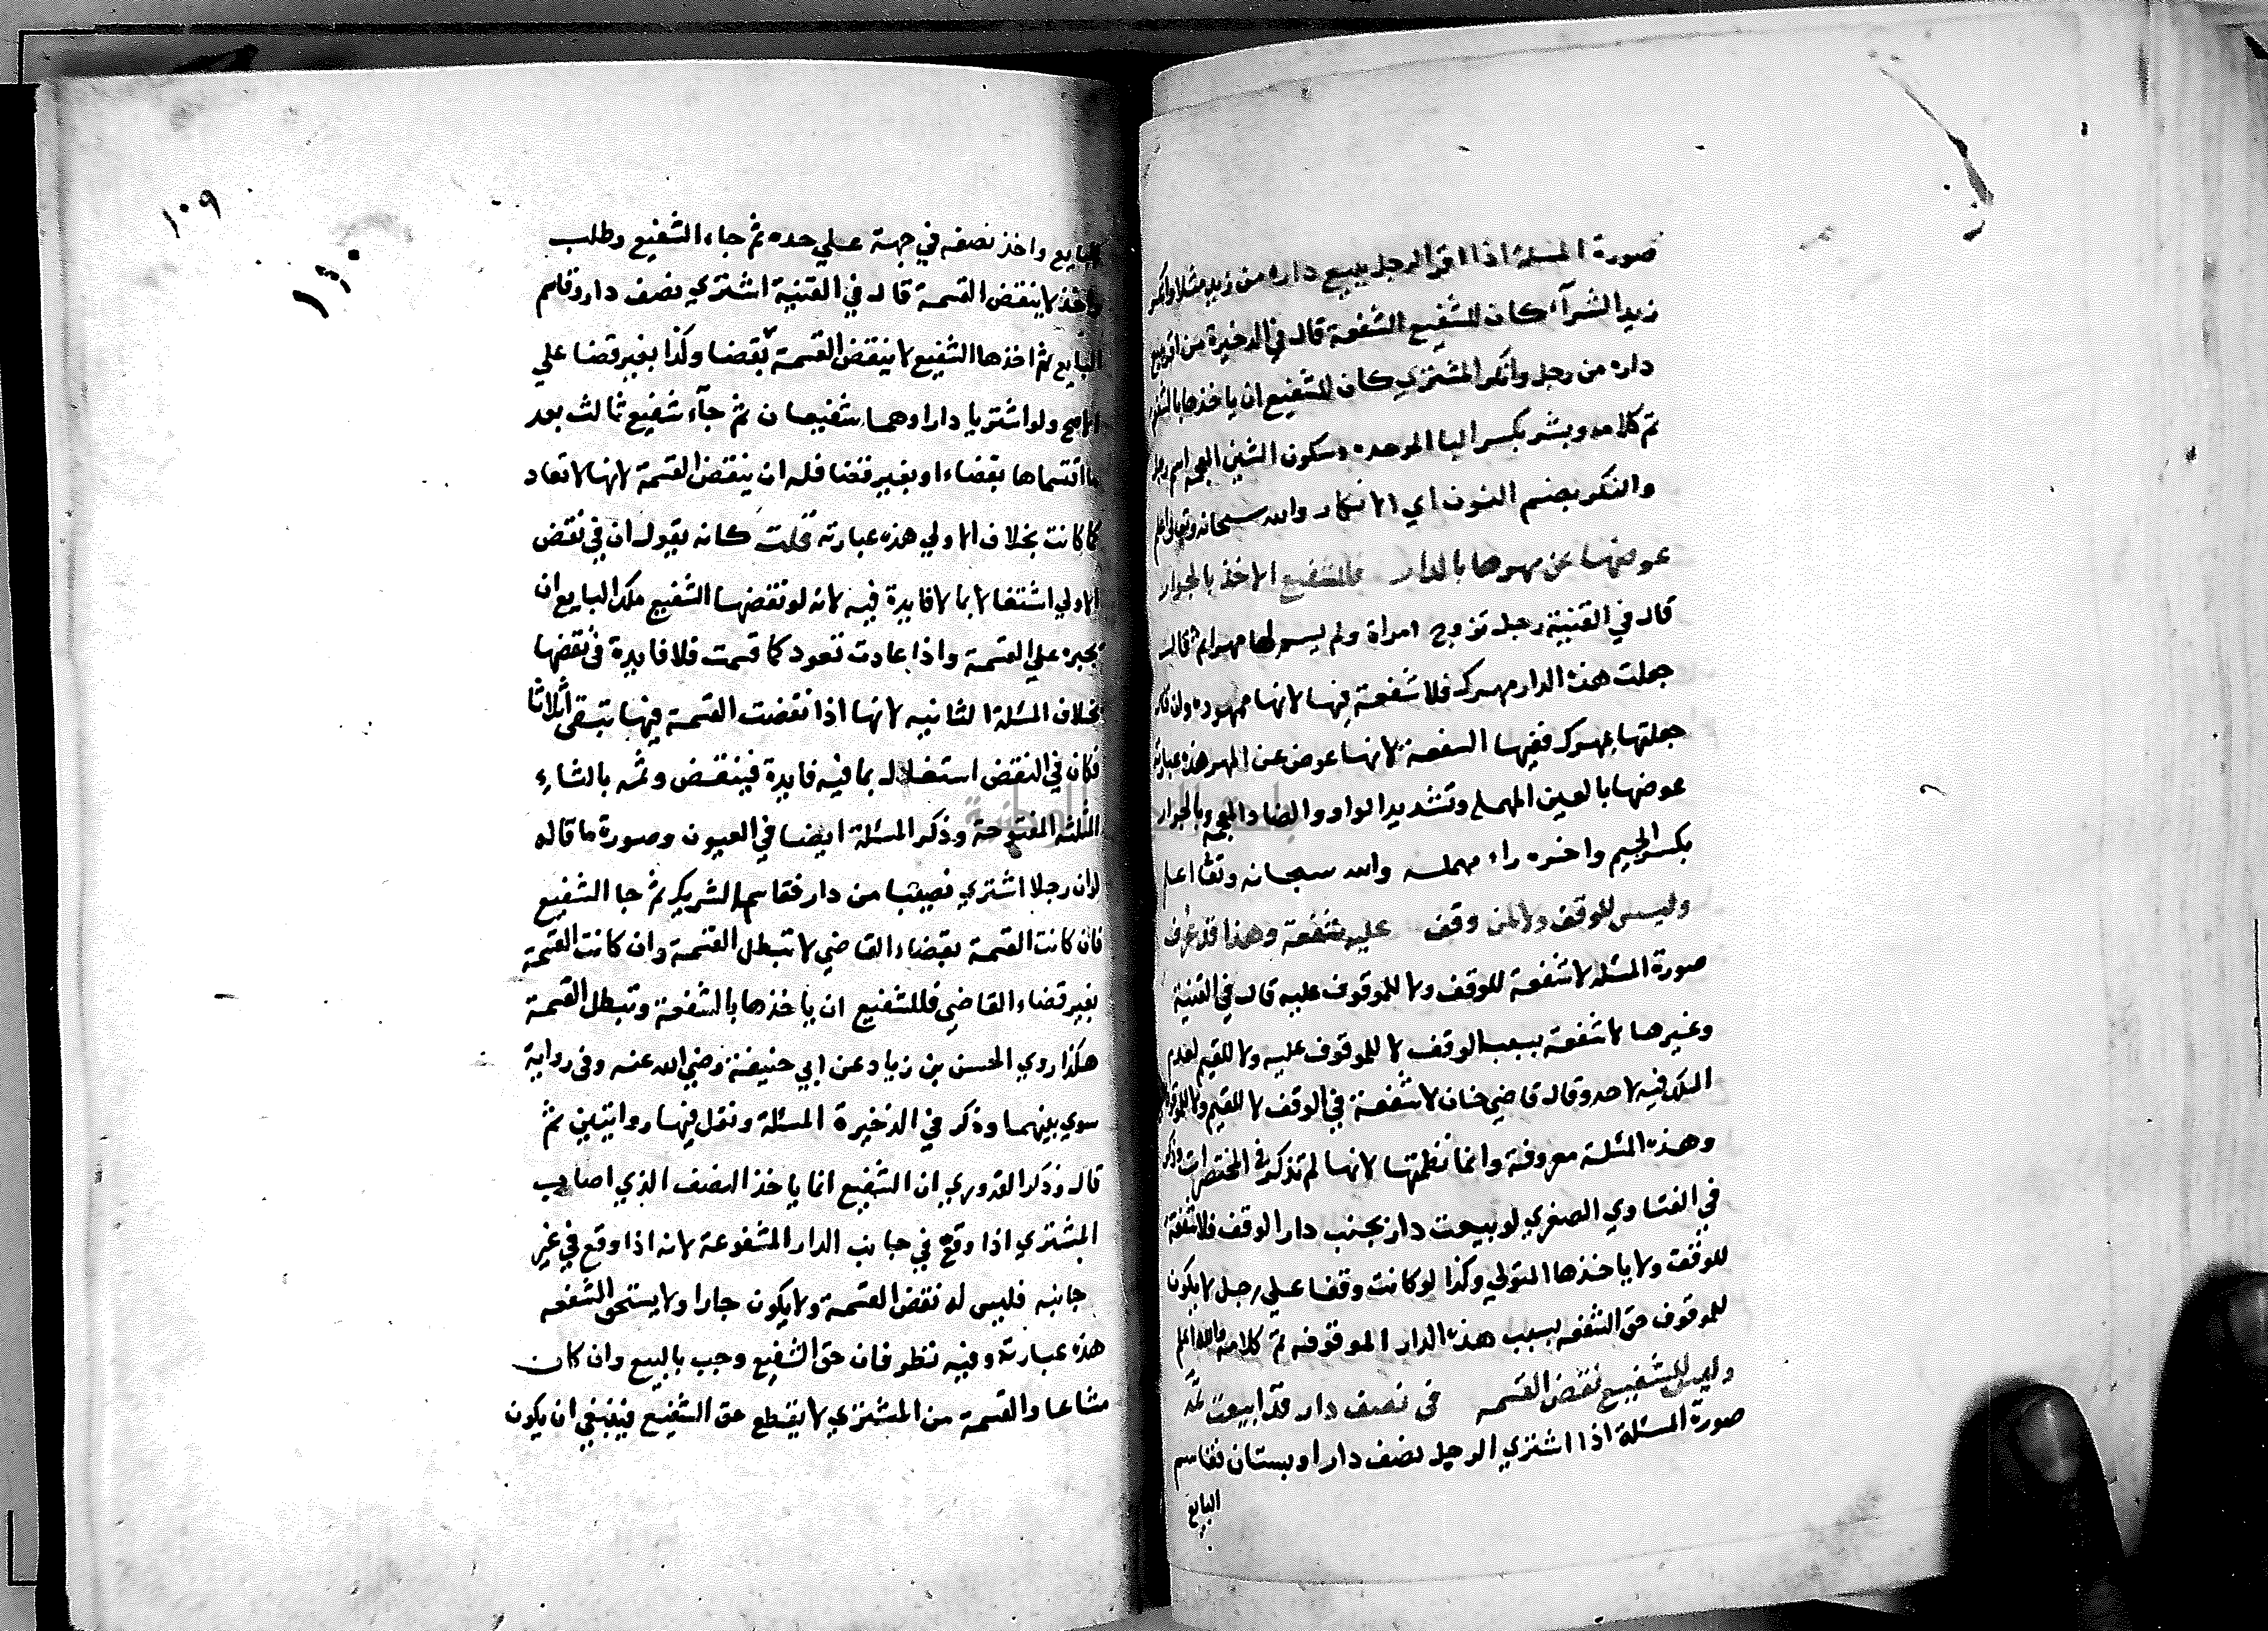 صورة المسئلة اذا اقر الرجل ببيع داره من زيد مثلا وانكر
زيد الشرآء كان للشفيع الشفعة قال في الذخيرة من اقر ببيع
داره من رجل وانكر المشتري كان للشفيع ان ياخذها بالشفعة
تم كلامه وبشر بكسر البا الموحده وسكون الشين المعجمه اسم رجل
والنكر بضم النون اي الانكار والله سبحانه وتعالى اعلم
عوضها عن مهرها بالدار فللشفيع الاخذ بالجوار
قال في القنية رجل تزوج امراة ولم يسم لها مهرا ثم قال
جعلت هذه الدار مهرك فلا شفعة فيها لانها ممهوده وان قال
جعلتها بمهرك ففيها الشفعة لانها عوض عن المهر هذه عبارته
عوضها بالعين المهمله وتشديد الواو والضاد المعجمه وبالجوار
بكسر الجيم واخره راء مهمله والله سبحانه وتعا اعلم
وليس للوقف ولا لمن وقف عليه شفعة وهذا قد عرف
صورة المسئله لا شفعة للوقف ولا للموقوف عليه قال في القنية
وغيرها لا شفعة بسبب الوقف لا للموقوف عليه ولا للقيم لعدم
الملك فيه لاحد وقال قاضي خان لا شفعة في الوقف لا للقيم ولا للموقوف
وهذه المسئلة معروفة وانما نظمتها لانها لم تذكر في المختصرات وذكر
في الفتاوي الصغري لو بيعت دار بجنب دار الوقف فلا شفعة
للوقف ولا ياخذها المتولي وكذا لو كانت وقفا علي رجل لا يكون
للموقوف حق الشفعه بسبب هذه الدار الموقوفه تم كلامه والله اعلم
وليس للشفيع نقض القسمه في نصف دار قد ابيعت
صورة المسئلة اذا اشتري الرجل نصف دار او بستان فقاسم
البايع
١٠٩
١١٠
البايع واخذ نصفه في جهة علي حده ثم جاء الشفيع وطلب
واخذ لا ينقض القسمة قال في القنية اشتري نصف دار وقاسم
البايع ثم اخذها الشفيع لا ينقض القسمة بقضا وكذا بغير قضا علي
الاصح ولو اشتريا دارا وهما شفيعان ثم جآء شفيع ثالث بعد
ما اقتسماها بقضاء او بغير قضا فله ان ينقض القسمة لانها لا تعاد
كما كانت بخلاف الاولي هذه عبارته قلت كانه يقول ان في نقض
الاولي اشتغالا بما لا فايدة فيه لانه لو نقضها الشفيع ملك البايع ان
يجبره علي القسمة واذا عادت تعود كما قسمت فلا فايدة في نقضها
بخلاف المسئلة الثانيه لانها اذا نقضت القسمة فيها تبقى اثلاثا
فكان في النقض استغلال بما فيه فايدة فينقض وثمه بالثاء
المثلثه المفتوحة وذكر المسئلة ايضا في العيون وصورة ما قاله
لو ان رجلا اشتري نصيبا من دار فقاسم الشريك ثم جا الشفيع
فان كانت القسمة بقضاء القاضي لا تبطل القسمة وان كانت القسمة
بغير قضاء القاضي فللشفيع ان ياخذها بالشفعة وتبطل القسمة
هكذا روي الحسن بن زياد عن ابي حنيفة رضي الله عنه وفي رواية
سوي بينهما وذكر في الذخيرة المسئلة ونقل فيها روايتين ثم
قال وذكر القدوري ان الشفيع انما ياخذ النصف الذي اصاب
المشتري اذا وقع في جانب الدار المشفوعة لانه اذا وقع في غير
جانبه فليس له نقض القسمة ولا يكون جارا ولا يستحق الشفعه
هذه عبارته وفيه نظر فان حق الشفيع وجب بالبيع وان كان
مشاعا والقسمة من المشتري لا يقطع حق الشفيع فينبغي ان يكون